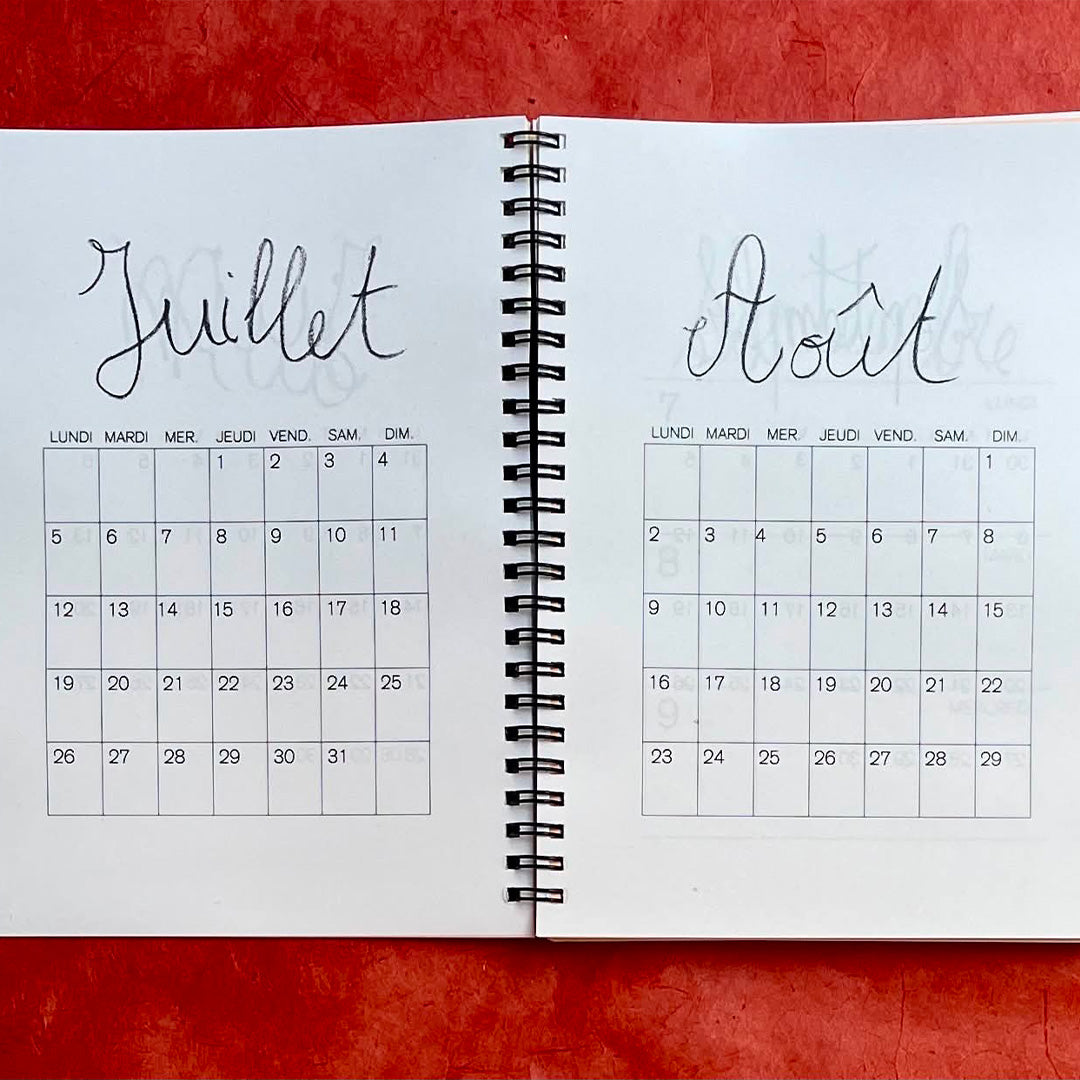 Juillet
LUNDI MARDI MER. JEUDI VEND. SAM. DIM.
1 2 3 4
5 6 7 8 9 10 11
12 13 14 15 16 17 18
19 20 21 22 23 24 25
26 27 28 29 30 31
Août
LUNDI MARDI MER. JEUDI VEND. SAM. DIM.
1
2 3 4 5 6 7 8
9 10 11 12 13 14 15
16 17 18 19 20 21 22
23 24 25 26 27 28 29